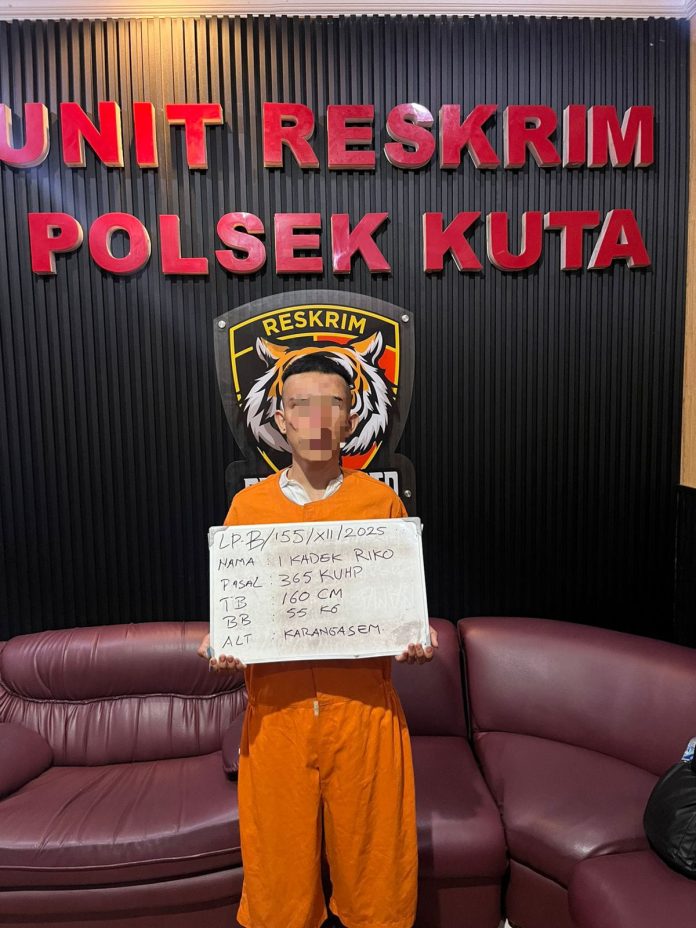 UNIT RESKRIM
POLSEK KUTA
RESKRIM
LP-B/155/XII/2025
NAMA : I KADEK RIKO
PASAL : 365 KUHP
TB : 160 CM
BB : 55 KG
ALT : KARANGASEM